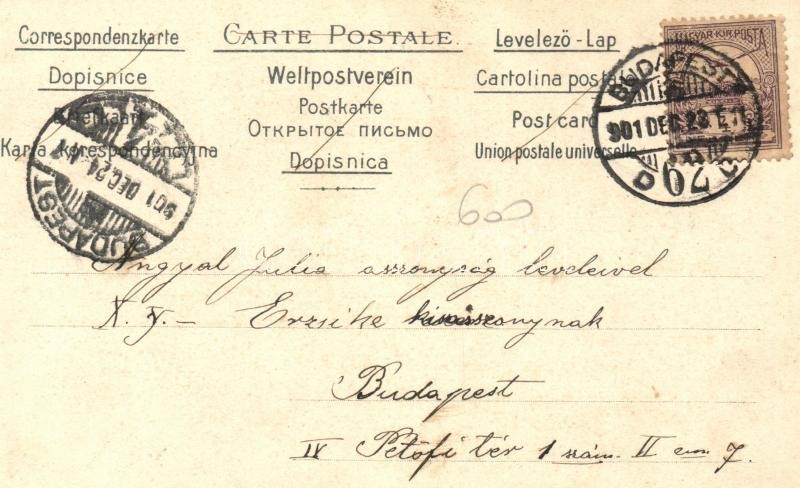 Correspondenzkarte
CARTE POSTALE.
Levelező - Lap
Dopisnice
Weltpostverein
Cartolina postale
Briefkaart
Postkarte
Post card
Karta korespondencyjna
ОТКРЫТОЕ ПИСЬМО
Union postale universelle
Dopisnica
MAGYAR KIR. POSTA
BUDAPEST
901 DEC 23 E 11
BUDAPEST
901 DEC 24
600
Angyal Julia asszonyság leveleivel
Erzsike kisasszonynak
Budapest
IV Petőfi tér 1 szám. II em. 7.